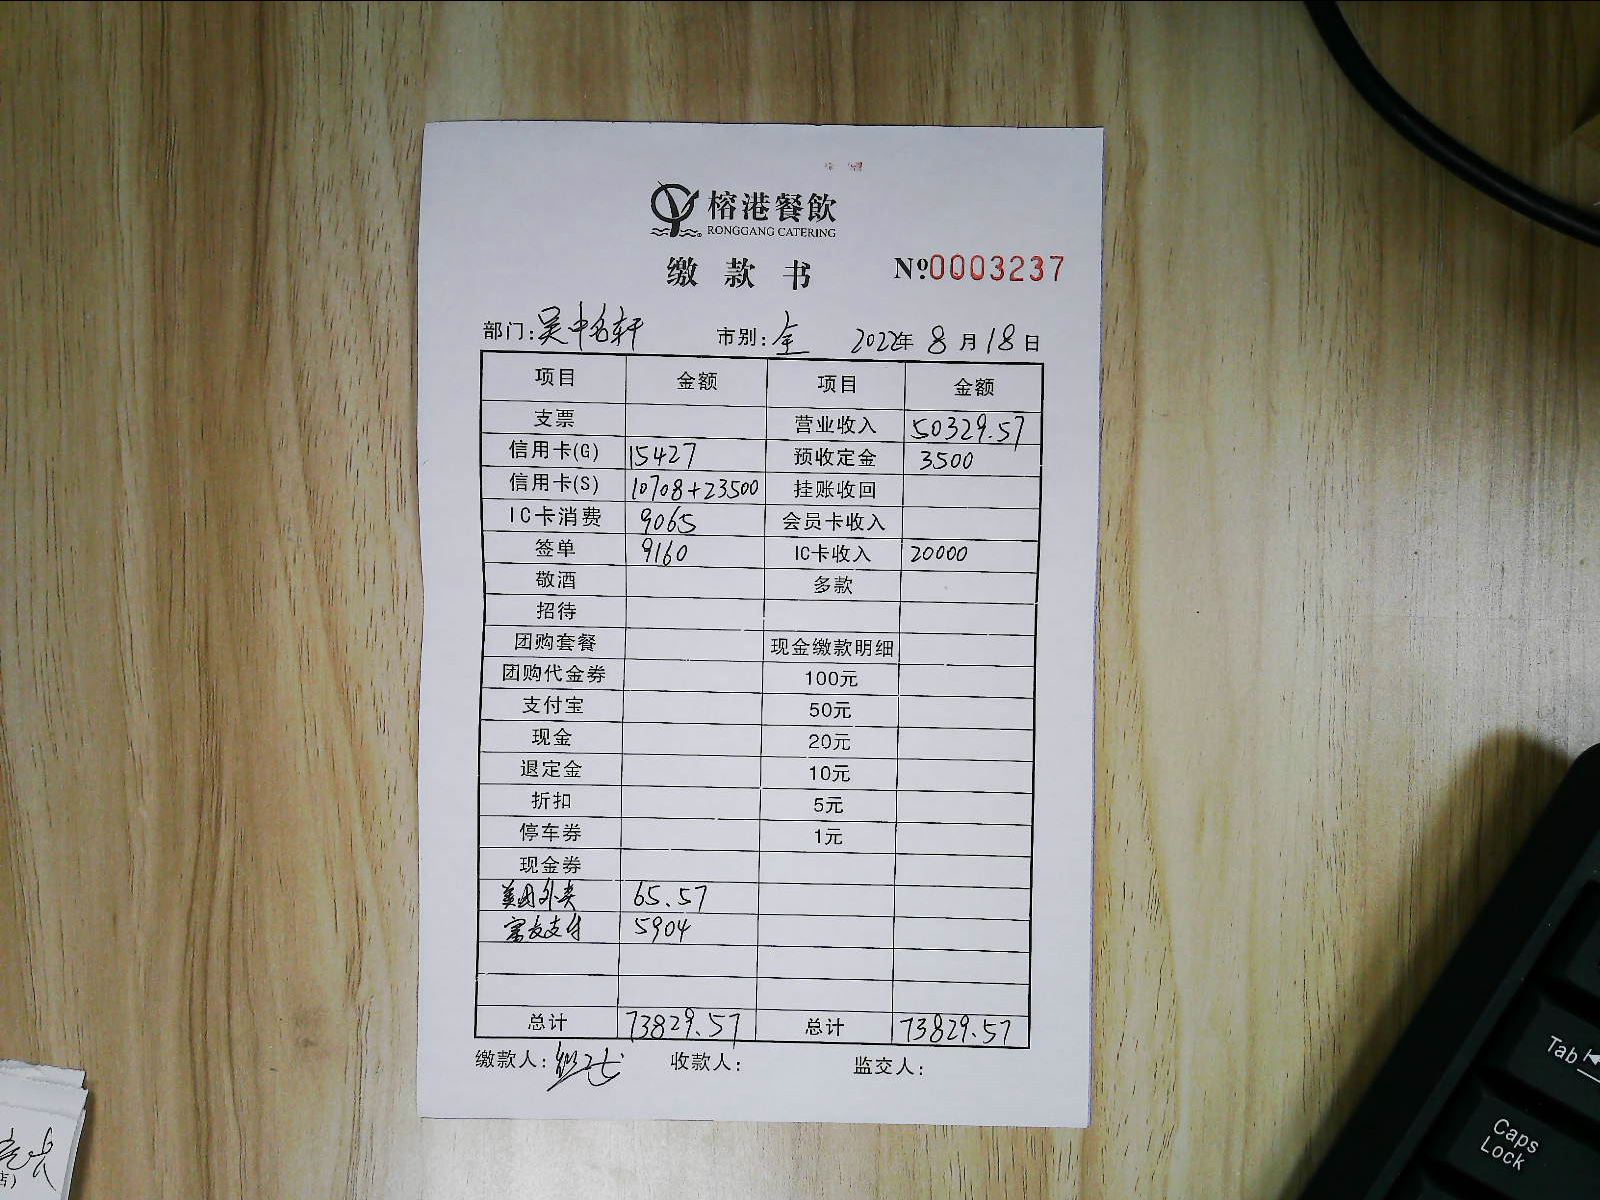 榕港餐飲
RONGGANG CATERING
缴款书 №0003237
部门:吴中名轩 市别:全 2022年8月18日
项目 金额 项目 金额
支票 营业收入 50329.57
信用卡(G) 15427 预收定金 3500
信用卡(S) 10708+23500 挂账收回
IC卡消费 9065 会员卡收入
签单 9160 IC卡收入 20000
敬酒 多款
招待
团购套餐 现金缴款明细
团购代金券 100元
支付宝 50元
现金 20元
退定金 10元
折扣 5元
停车券 1元
现金券
美团外卖 65.57
富友支付 5904
总计 73829.57 总计 73829.57
缴款人: 收款人: 监交人:
Tab
Caps
Lock
店)